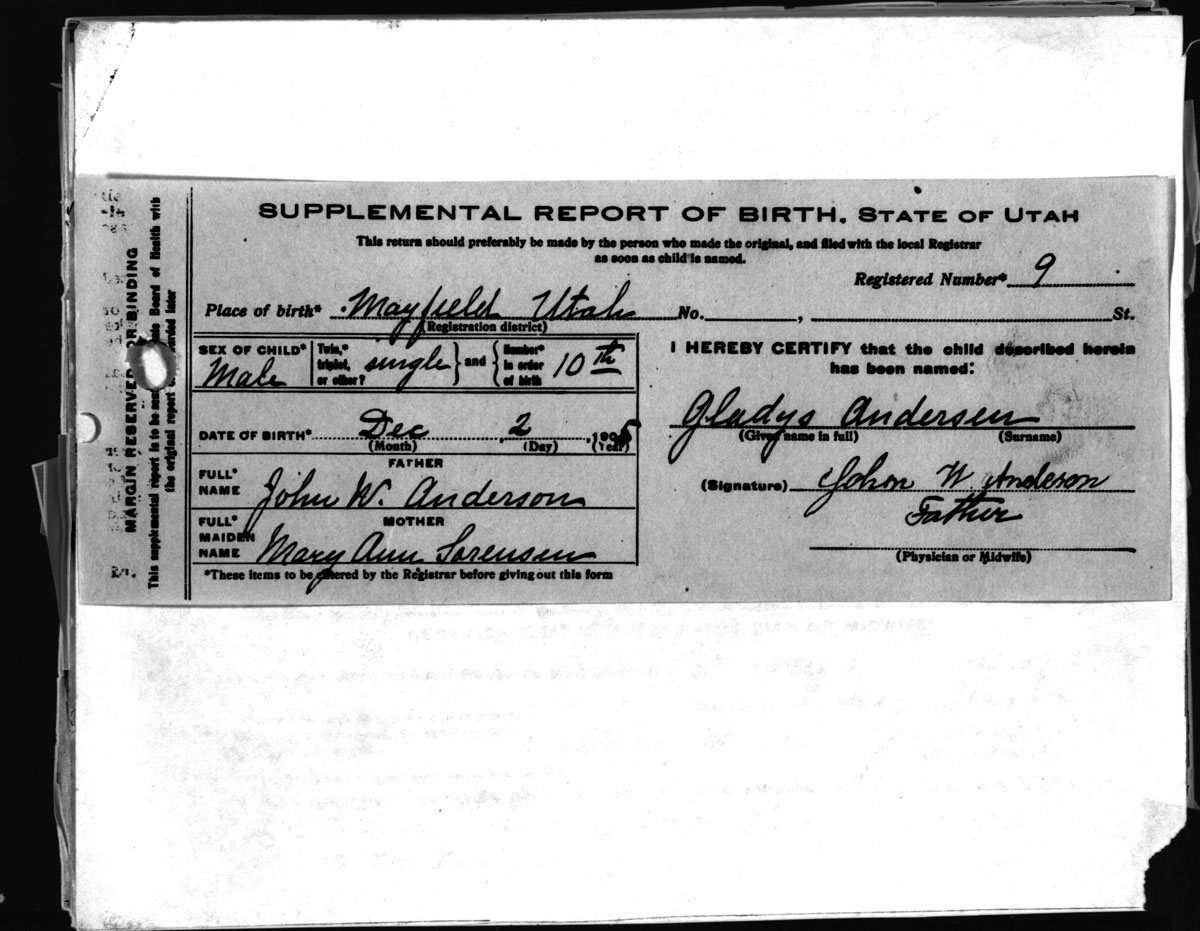 SUPPLEMENTAL REPORT OF BIRTH. STATE OF UTAH
This return should preferably be made by the person who made the original, and filed with the local Registrar
as soon as child is named.
Registered Number* 9
Place of birth* Mayfield Utah No. , St.
(Registration district)
SEX OF CHILD* Male
Twin,* triplet, or other? single } and { Number* in order of birth 10th
DATE OF BIRTH* Dec 2, 1905
(Month) (Day) (Year)
FATHER
FULL* NAME John W. Anderson
MOTHER
FULL* MAIDEN NAME Mary Ann Sorensen
*These items to be entered by the Registrar before giving out this form
I HEREBY CERTIFY that the child described herein
has been named:
Gladys Andersen
(Given name in full) (Surname)
(Signature) John W. Anderson
Father
(Physician or Midwife)
MARGIN RESERVED FOR BINDING
This supplemental report is to be Board of Health with
the original report later